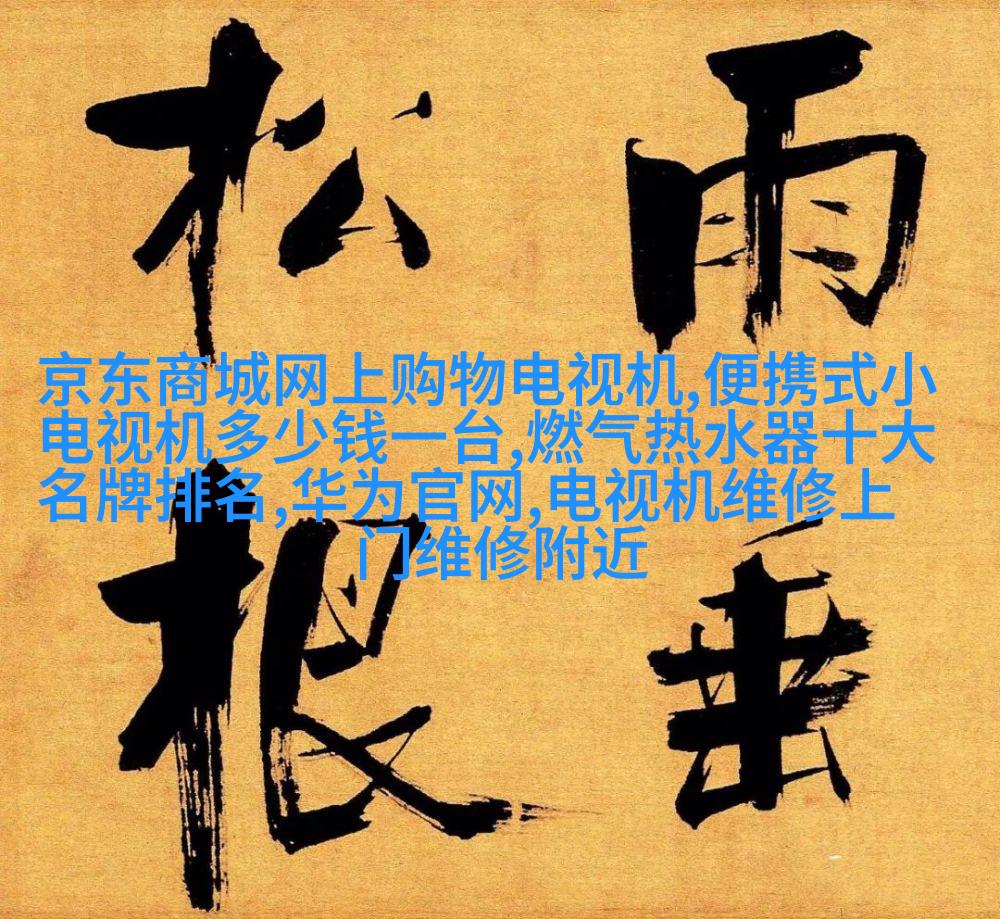 雨垂
松根
京东商城网上购物电视机,便携式小
电视机多少钱一台,燃气热水器十大
名牌排名,华为官网,电视机维修上
门维修附近